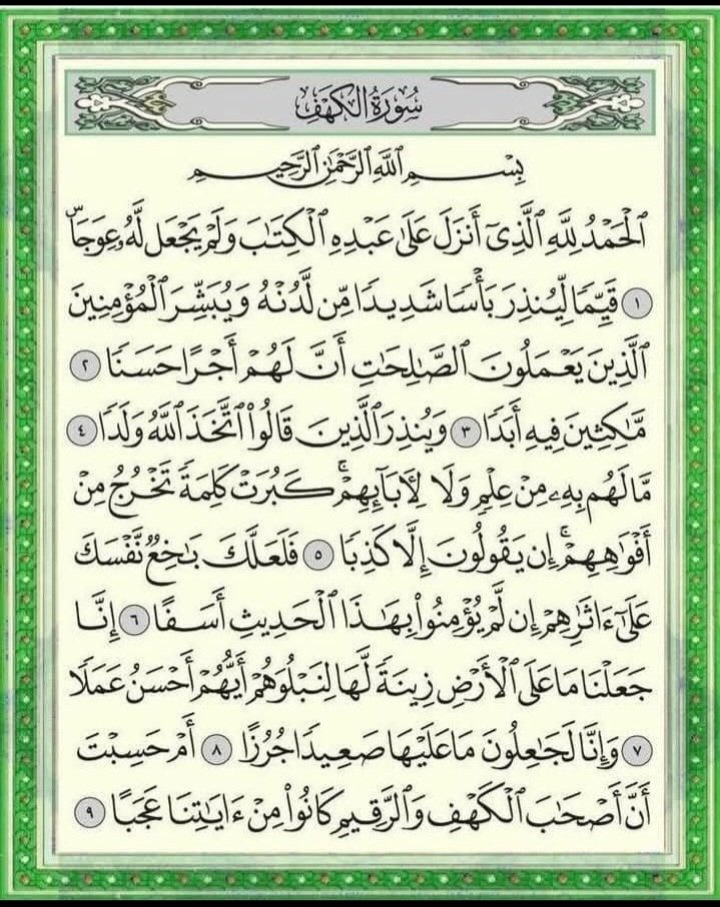 سُورَةُ الكَهْفِ
بِسْمِ ٱللَّهِ ٱلرَّحْمَٰنِ ٱلرَّحِيمِ
ٱلْحَمْدُ لِلَّهِ ٱلَّذِىٓ أَنزَلَ عَلَىٰ عَبْدِهِ ٱلْكِتَٰبَ وَلَمْ يَجْعَل لَّهُۥ عِوَجَاۜ
١ قَيِّمًا لِّيُنذِرَ بَأْسًا شَدِيدًا مِّن لَّدُنْهُ وَيُبَشِّرَ ٱلْمُؤْمِنِينَ
ٱلَّذِينَ يَعْمَلُونَ ٱلصَّٰلِحَٰتِ أَنَّ لَهُمْ أَجْرًا حَسَنًا ٢
مَّٰكِثِينَ فِيهِ أَبَدًا ٣ وَيُنذِرَ ٱلَّذِينَ قَالُوا۟ ٱتَّخَذَ ٱللَّهُ وَلَدًا ٤
مَّا لَهُم بِهِۦ مِنْ عِلْمٍ وَلَا لِءَابَآئِهِمْ ۚ كَبُرَتْ كَلِمَةً تَخْرُجُ مِنْ
أَفْوَٰهِهِمْ ۚ إِن يَقُولُونَ إِلَّا كَذِبًا ٥ فَلَعَلَّكَ بَٰخِعٌ نَّفْسَكَ
عَلَىٰٓ ءَاثَٰرِهِمْ إِن لَّمْ يُؤْمِنُوا۟ بِهَٰذَا ٱلْحَدِيثِ أَسَفًا ٦ إِنَّا
جَعَلْنَا مَا عَلَى ٱلْأَرْضِ زِينَةً لَّهَا لِنَبْلُوَهُمْ أَيُّهُمْ أَحْسَنُ عَمَلًا
٧ وَإِنَّا لَجَٰعِلُونَ مَا عَلَيْهَا صَعِيدًا جُرُزًا ٨ أَمْ حَسِبْتَ
أَنَّ أَصْحَٰبَ ٱلْكَهْفِ وَٱلرَّقِيمِ كَانُوا۟ مِنْ ءَايَٰتِنَا عَجَبًا ٩